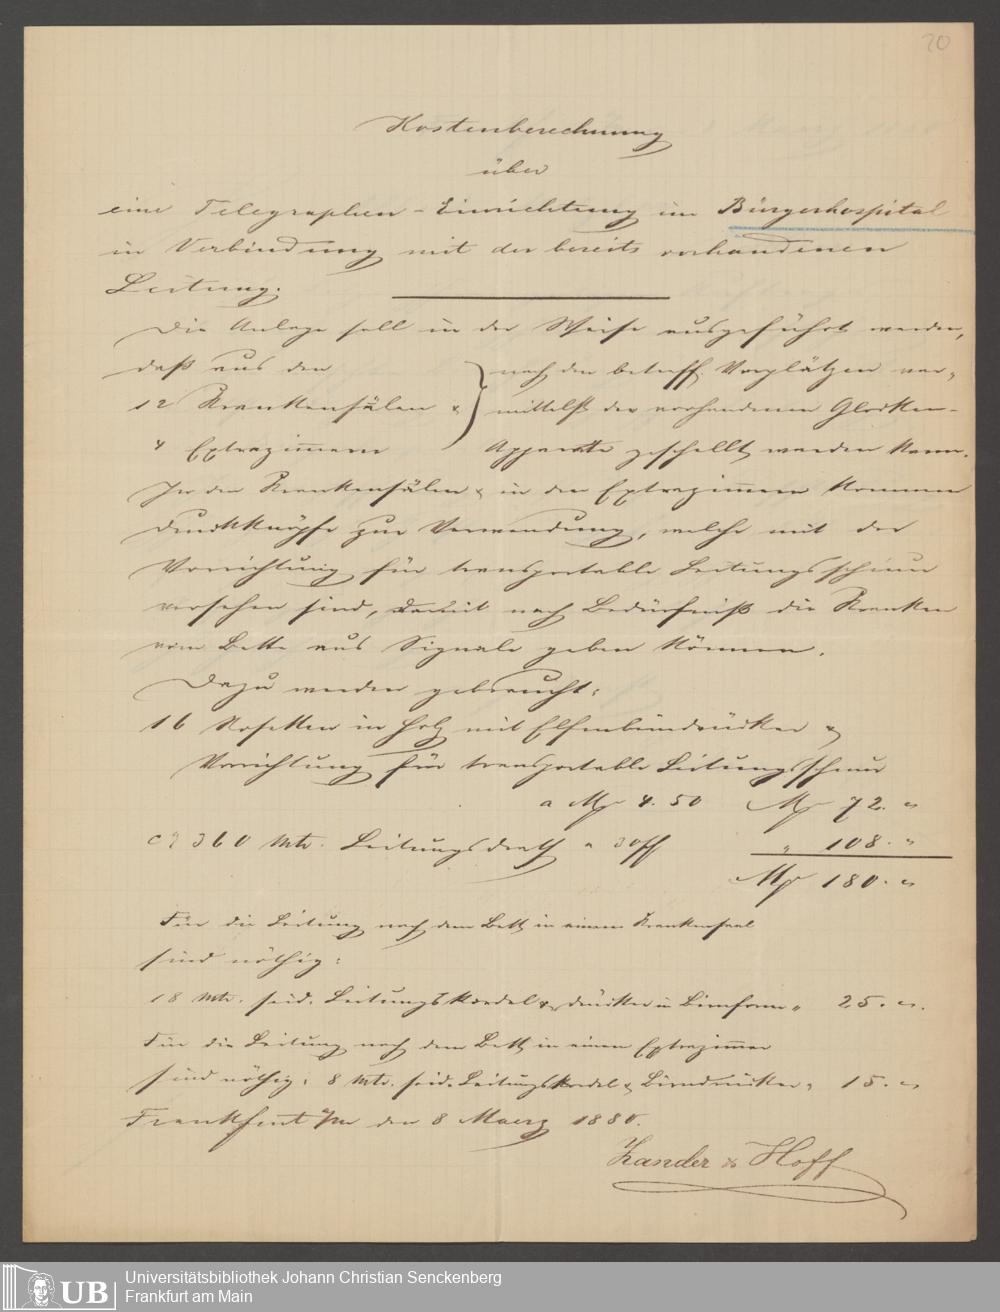 20
Kostenberechnung
über
eine Telegraphen-Einrichtung im Bürgerhospital
in Verbindung mit der bereits vorhandenen
Leitung.
Die Anlage soll in der Weise ausgeführt werden,
daß aus den } nach den betreff. Vorplätzen ver-
12 Krankensälen & mittelst der vorhandenen Glocken-
4 Extrazimmern Apparate geschellt werden kann.
In den Krankensälen & in den Extrazimmern kommen
Druckknöpfe zur Verwendung, welche mit der
Vorrichtung für transportable Leitungsschnur
versehen sind, damit nach Bedürfniß die Kranken
vom Bette aus Signale geben können.
Dazu werden gebraucht:
16 Rosetten in Holz mit Elfenbeindrücker &
Vorrichtung für transportable Leitungsschnur
a M 4.50 M 72. "
ca 360 Mtr. Leitungsdrath a 30 " 108. "
M 180. "
Für die Leitung nach dem Bett in einem Krankensaal
sind nöthig:
18 Mtr. seid. Leitungskordel & drücker in Birnform " 25. "
Für die Leitung nach dem Bett in einem Extrazimmer
sind nöthig: 8 Mtr. seid. Leitungskordel & Birndrücker " 15. "
Frankfurt a/M den 8 Maerz 1880.
Zander & Hoff
UB
Universitätsbibliothek Johann Christian Senckenberg
Frankfurt am Main